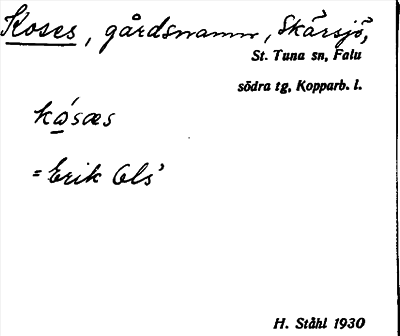 Koses, gårdsnamn, Skärsjö,
St. Tuna sn, Falu
södra tg, Kopparb. l.
kåsæs
= Erik Ols'
H. Ståhl 1930